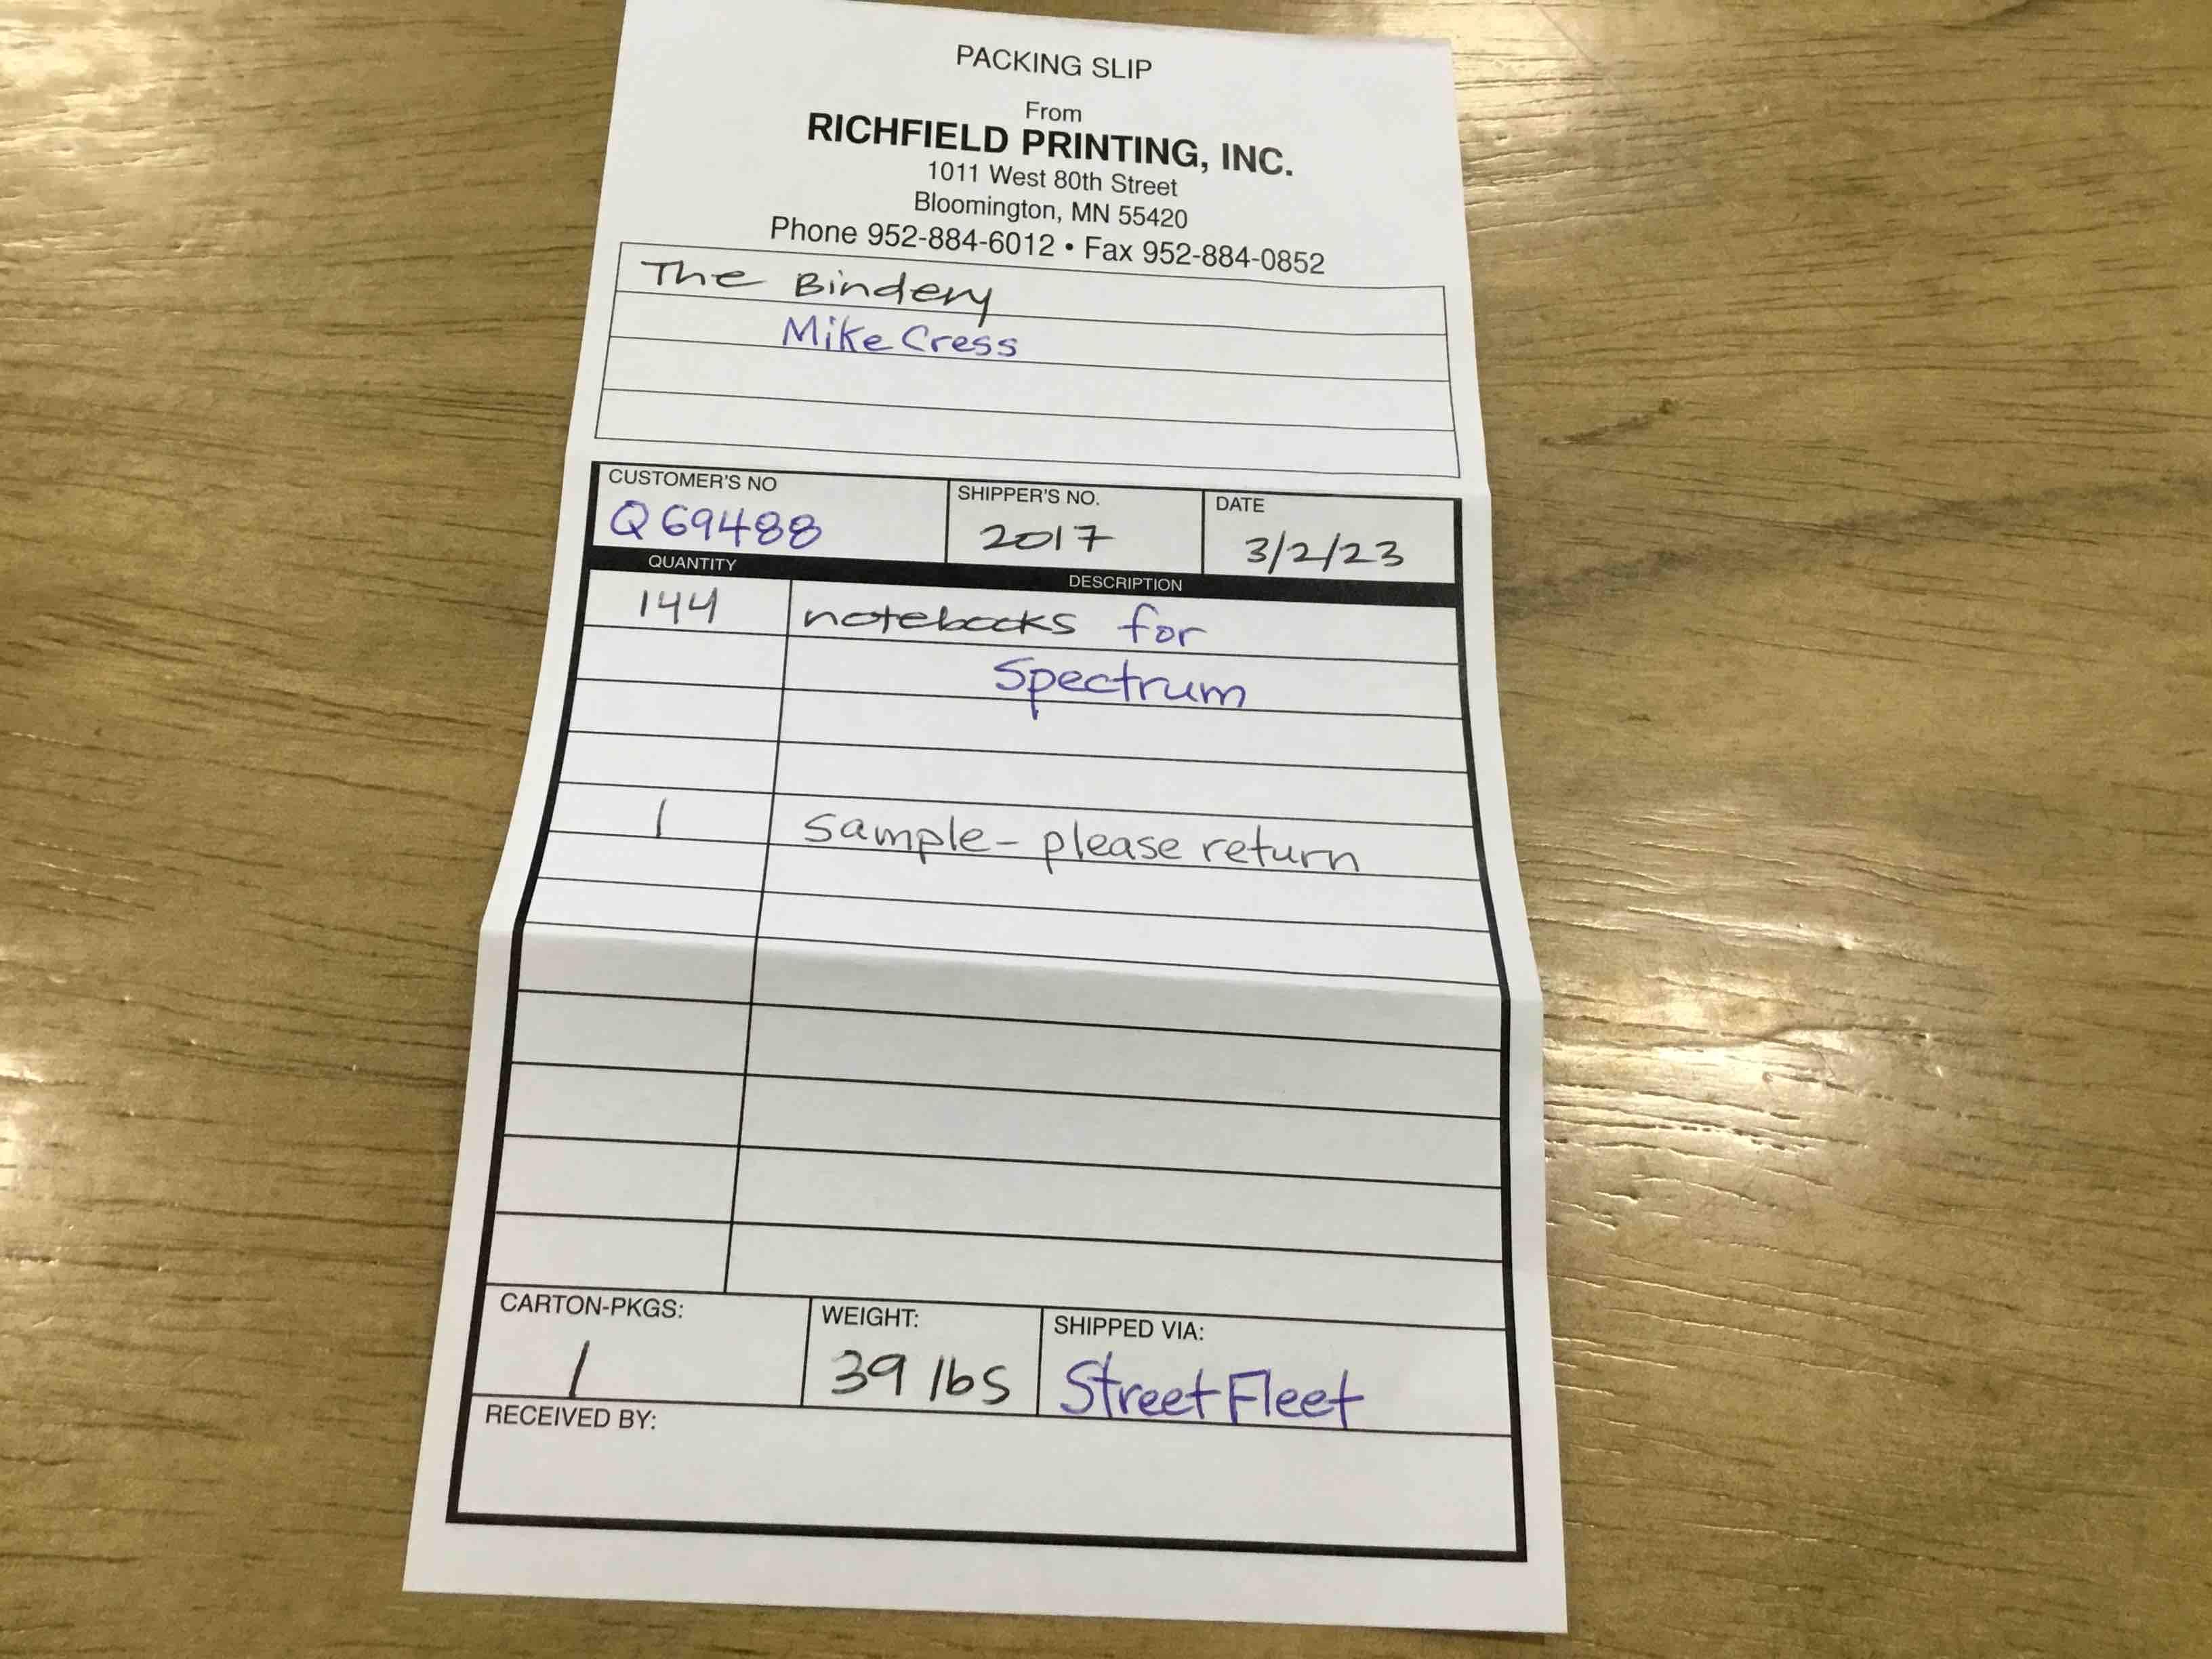 PACKING SLIP
From
RICHFIELD PRINTING, INC.
1011 West 80th Street
Bloomington, MN 55420
Phone 952-884-6012 • Fax 952-884-0852
The Bindery
Mike Cress
CUSTOMER'S NO SHIPPER'S NO. DATE
Q69488 2017 3/2/23
QUANTITY DESCRIPTION
144 notebooks for
Spectrum
1 sample - please return
CARTON-PKGS: WEIGHT: SHIPPED VIA:
1 39 lbs Street Fleet
RECEIVED BY: